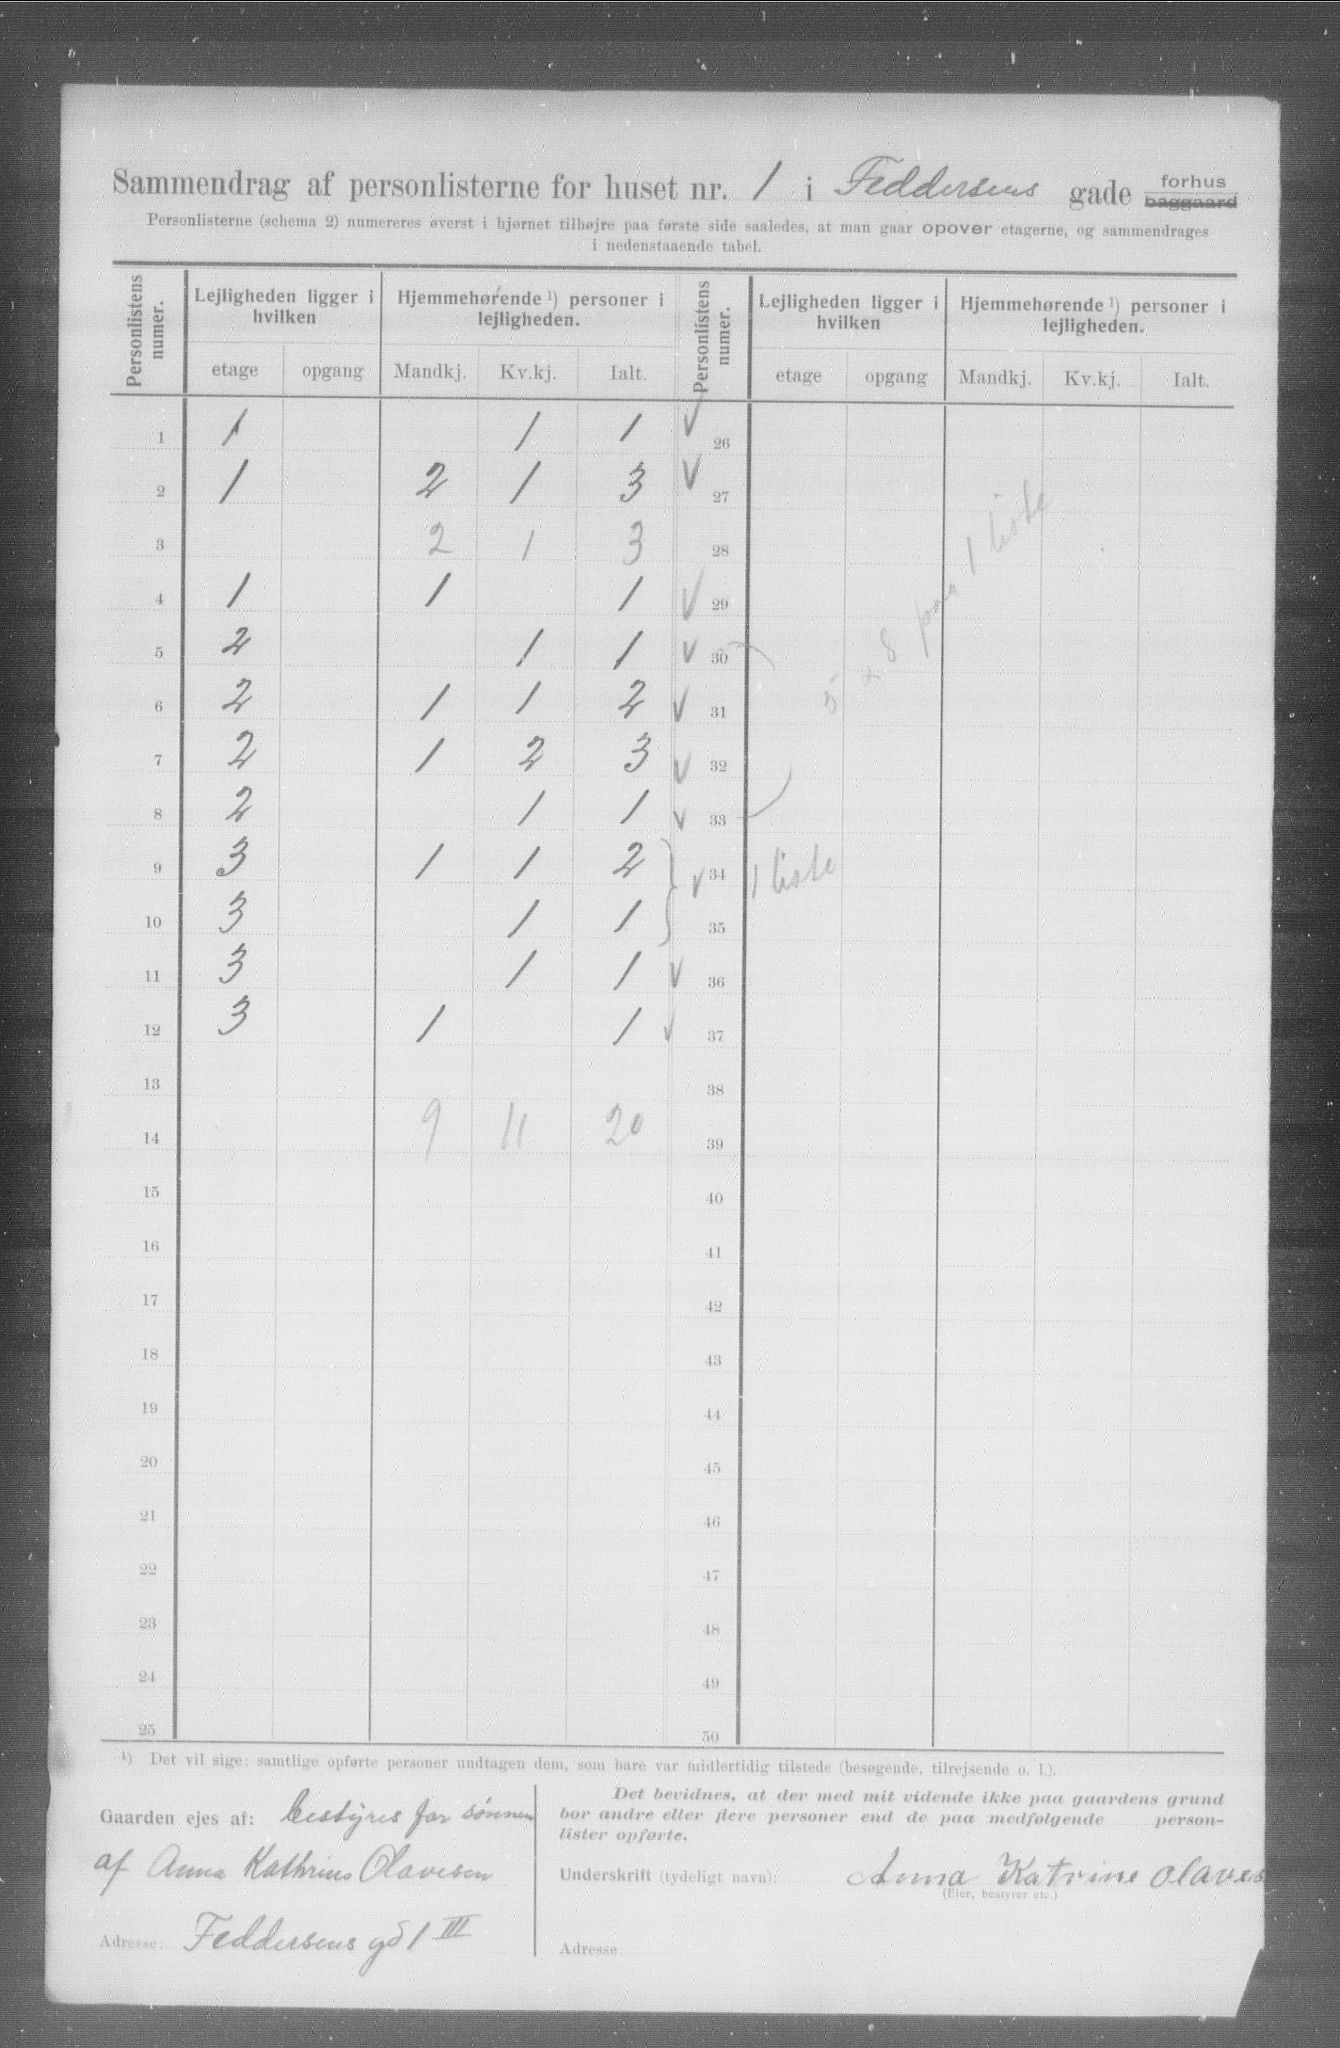 Sammendrag af personlisterne for huset nr. 1 i Feddersens gade forhus baggaard
Personlisterne (schema 2) numereres øverst i hjørnet tilhøjre paa første side saaledes, at man gaar opover etagerne, og sammendrages
i nedenstaaende tabel.
Personlistens numer. Lejligheden ligger i hvilken Hjemmehørende ¹) personer i lejligheden. Personlistens numer. Lejligheden ligger i hvilken Hjemmehørende ¹) personer i lejligheden.
etage opgang Mandkj. Kv.kj. Ialt. etage opgang Mandkj. Kv.kj. Ialt.
1 1 1 1 26
2 1 2 1 3 27
3 2 1 3 28
4 1 1 1 29
5 2 1 1 30
6 2 1 1 2 31
7 2 1 2 3 32
8 2 1 1 33
5 8 paa 1 liste
9 3 1 1 2 34 1 liste
10 3 1 1 35
11 3 1 1 36
12 3 1 1 37
13 38
14 9 11 20 39
15 40
16 41
17 42
18 43
19 44
20 45
21 46
22 47
23 48
24 49
25 50
¹) Det vil sige: samtlige opførte personer undtagen dem, som bare var midlertidig tilstede (besøgende, tilrejsende o. l.).
Gaarden ejes af: bestyres for sønnen
af Anna Kathrine Olavesen
Adresse: Feddersens gd 1 III
Det bevidnes, at der med mit vidende ikke paa gaardens grund
bor andre eller flere personer end de paa medfølgende person-
lister opførte.
Underskrift (tydeligt navn): Anna Katrine Olaves
(Ejer, bestyrer etc.)
Adresse: